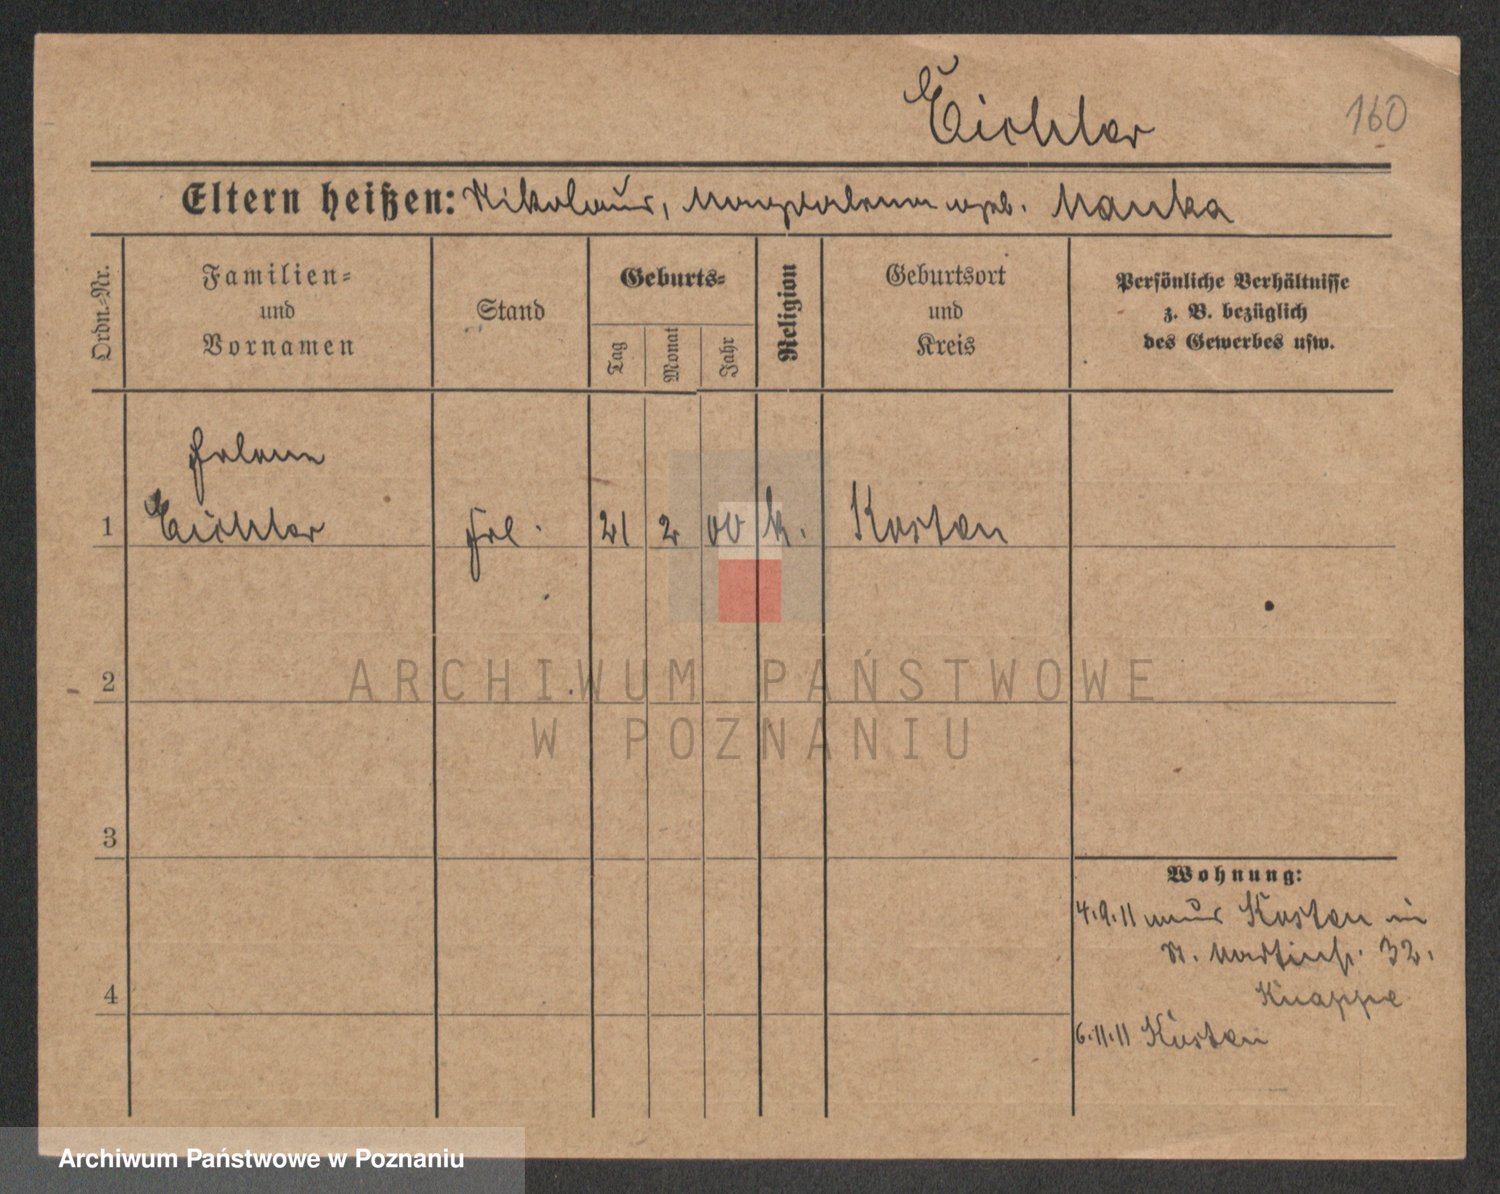 Eichler
160
Eltern heißen: Nikolaus, Magdalena geb. Manka
Ordn.-Nr.
Familien-
und
Vornamen
Stand
Geburts-
Tag
Monat
Jahr
Religion
Geburtsort
und
Kreis
Persönliche Verhältnisse
z. B. bezüglich
des Gewerbes usw.
Helene
1 Eichler frl. 21 2 00 k. Kosten
2
3
4
Wohnung:
4.9.11 aus Kosten in
St. Martinstr. 32.
Knappe
6.11.11 Kosten
ARCHIWUM PAŃSTWOWE
W POZNANIU
Archiwum Państwowe w Poznaniu